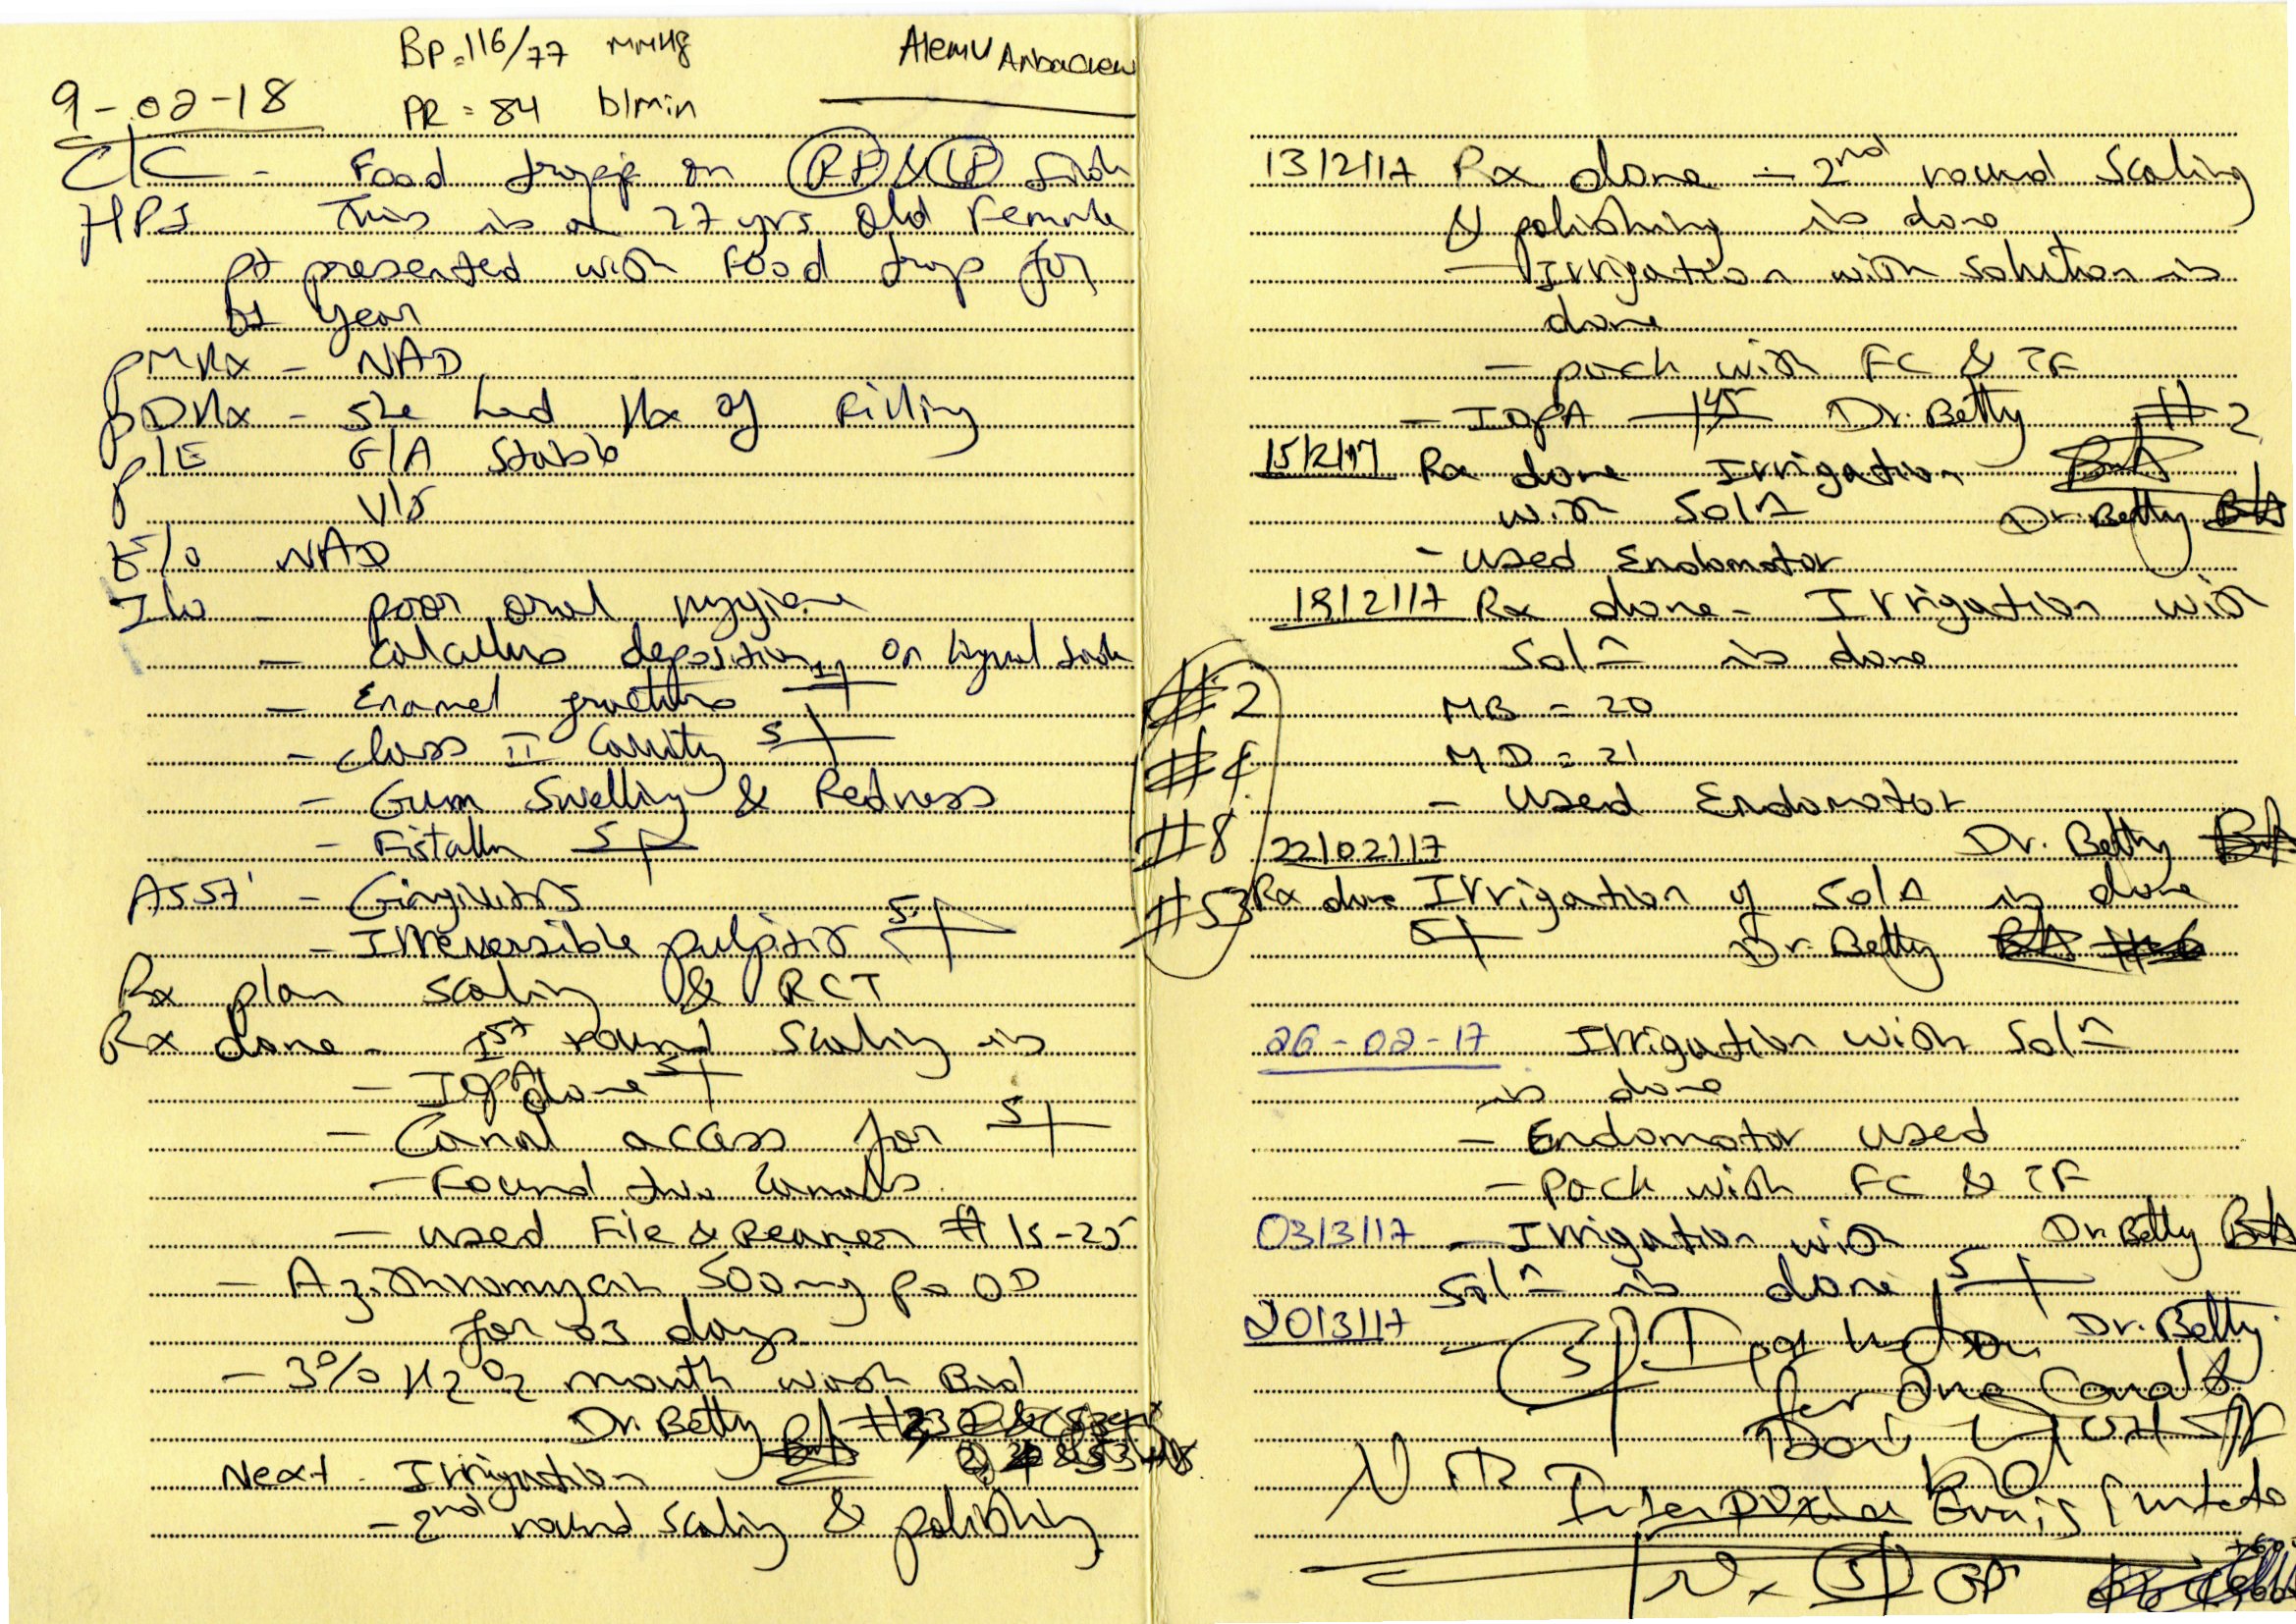 BP=116/77 mmHg
Alemu Anbachew
9-02-18
PR = 84 b/min
C/C - Food trapp on RP & LP tooth
HPI This is a 27 yrs old Female
pt presented with Food trap for
01 year
PMHx - NAD
PDHx - She had Hx of Filling
P/E G/A Stable
V/S
E/o NAD
I/o - poor oral hygiene
- calculus deposition on lingual tooth
- Enamel fracture
- class II Cavity 5
- Gum Swelling & Redness
- Fistalln 5
Asst - Gingivitis
- Irreversible pulpitis 5
Rx plan scaling & RCT
Rx done - 1st round Scaling is
- IOPA done 5
- Canal access for 5
- Found two canals
- used File & Reamer # 15-25
- Azithromycin 500mg po OD
for 03 days
- 3% H2O2 mouth wash Bid
Dr. Betty
Next - Irrigation
- 2nd round scaling & polishing
13/2/17 Rx done - 2nd round Scaling
& polishing is done
- Irrigation with solution is
done
- pack with FC & TF
- IOPA Dr. Betty #2
15/2/17 Rx done Irrigation
with Soln Dr. Betty
- used Endomotor
19/2/17 Rx done - Irrigation with
Soln is done
#2
MB = 20
#4
MD = 21
- Used Endomotor
#8
22/02/17 Dr. Betty
#53
Rx done Irrigation of Soln is done
5 Dr. Betty
26-02-17 Irrigation with Soln
is done
- Endomotor used
- Pack with FC & TF
03/3/17 - Irrigation with Dr. Betty
Soln is done 5
20/3/17 - 5 Dr. Betty
for one Canal &